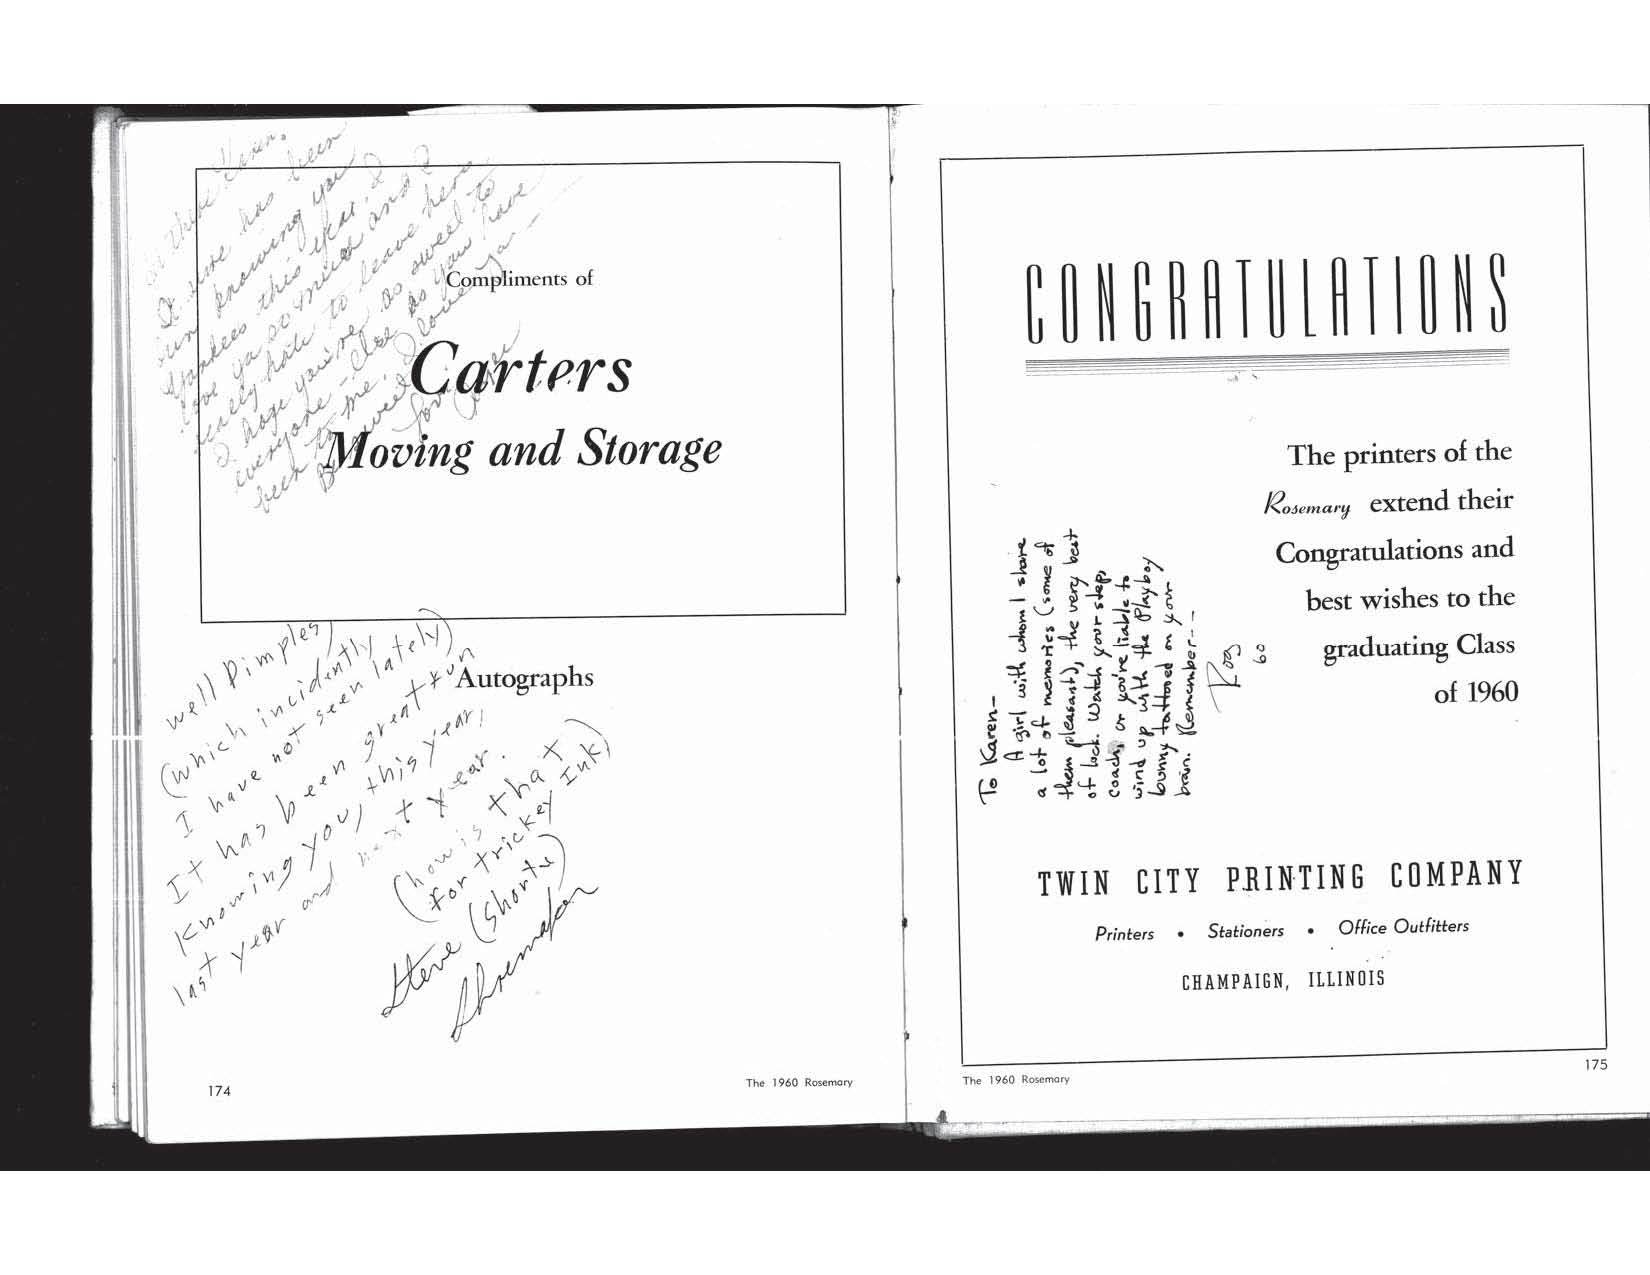 Hi there Karen.
It sure has been
fun knowing you
Yankees this year. I
love ya so much and I
really hate to leave here
I hope you're as sweet to
everyone else as you have
been to me. I love ya -
Be sweet
Compliments of
Carters
Moving and Storage
Autographs
well Dimples,
(which incidintly
I have not seen lately)
It has been great fun
Knowing you, this year,
last year and next year.
(how is that
for trickey Ink)
Steve (Shorty)
174
The 1960 Rosemary
CONGRATULATIONS
The printers of the
Rosemary extend their
Congratulations and
best wishes to the
graduating Class
of 1960
To Karen—
A girl with whom I share
a lot of memories (some of
them pleasant), the very best
of luck. Watch your step,
coach, or you're liable to
wind up with the Playboy
bunny tattooed on your
brain. Remember---
Rog
60
TWIN CITY PRINTING COMPANY
Printers • Stationers • Office Outfitters
CHAMPAIGN, ILLINOIS
The 1960 Rosemary
175